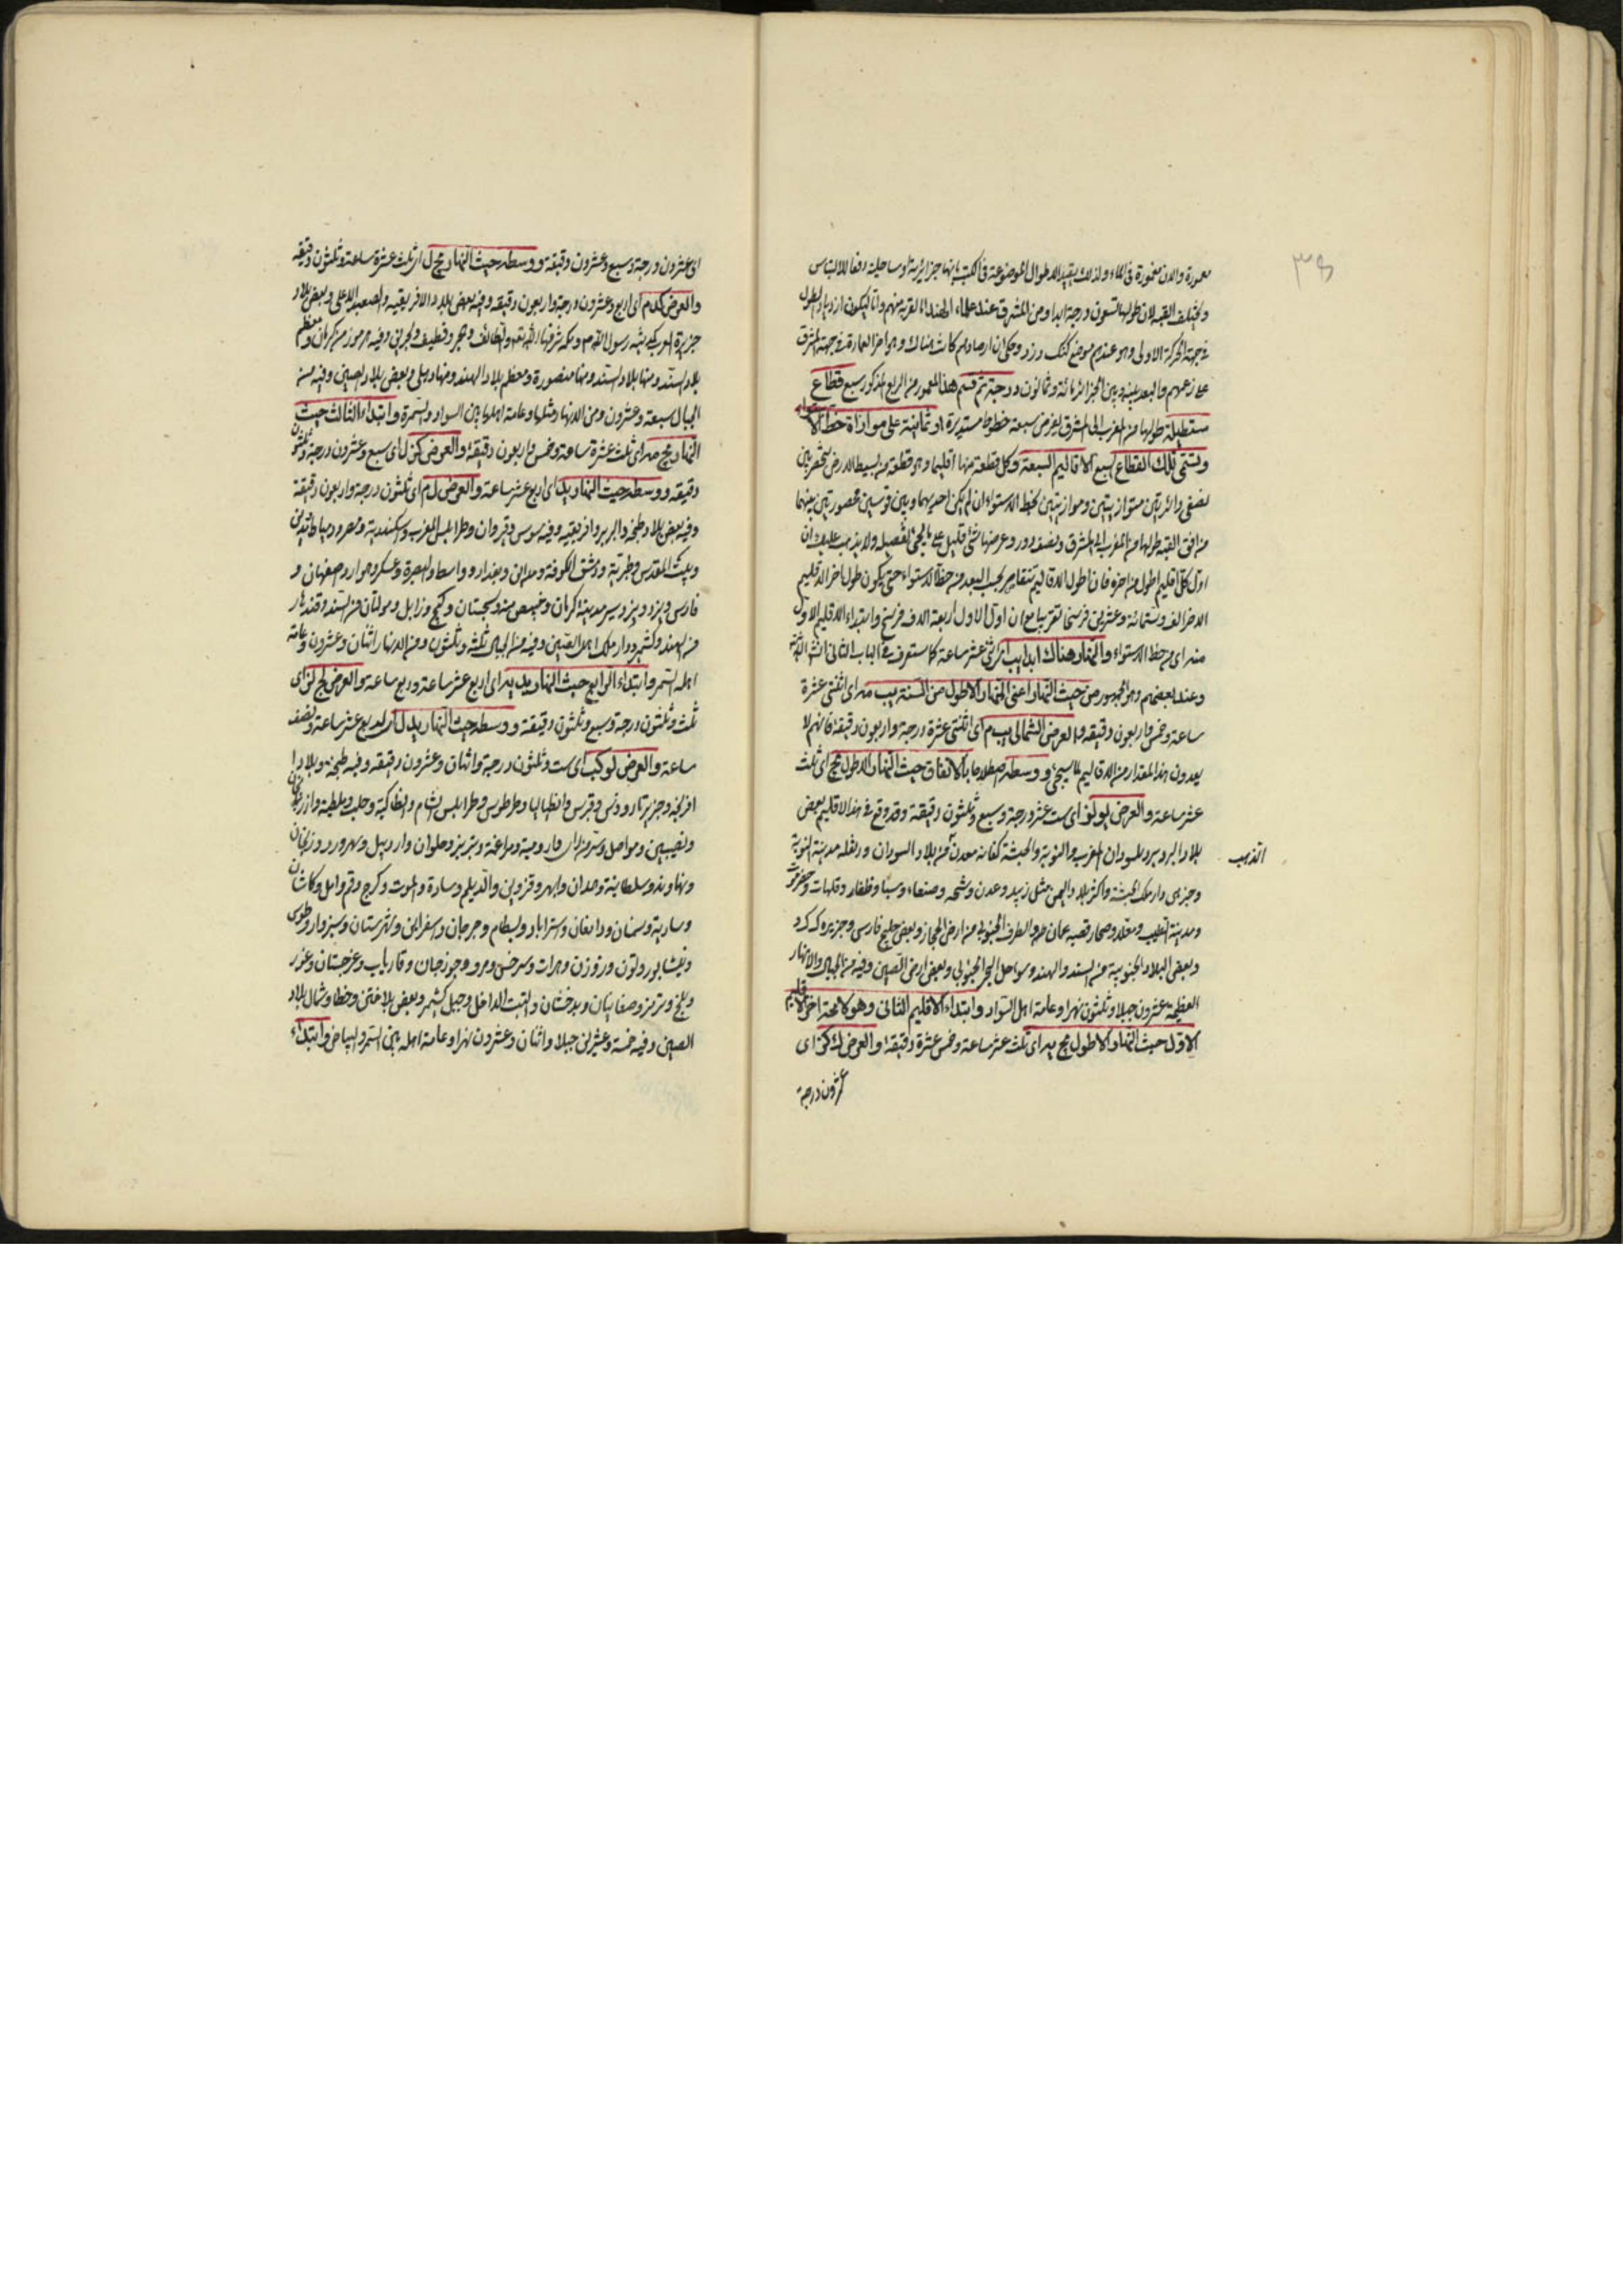 ٣٨
معمورة والان مغمورة فى الماء ولذلك يقيد الاطوال الموضوعة فى الكتب بانها جزايرية او ساحلية دفعا للالتباس
ولا يختلف القبة لان طولها تسعون درجة ابدا ومن المشرق عند علماء الهند لقربه منهم ولتكون ازدياد الطول
فى جهة الحركة الاولى وهو عندهم موضع كنك دزد وحكى ان ارصادهم كانت هناك وهو اخر العمارة فى جهة المشرق
على زعمهم والبعد بينه وبين الجزائر مائة وثمانون درجة ثم قسم هذا المعمور من الربع المذكور سبع قطاع
مستطيلة طولها من المغرب الى المشرق بعرض سبعة خطوط مستديرة او ثمانية على موازاة خط الاستواء
وتسمى تلك القطاع السبع الاقاليم السبعة وكل قطعة منها اقليما وهو قطعة من بسيط الارض ينحصر بين
نصفى دائرتين متوازيتين وموازيتين لخط الاستواء ان لم يكن احديهما وبين قوسين محصورتين بينهما
من افق القبة طولها من المغرب الى المشرق ونصف دور وعرضها شئ قليل على ما يجئ تفصيله ولا يذهب عليك ان
اول كل اقليم اطول من اخره فان اطول الاقاليم تتقاصر بحسب البعد من خط الاستواء حتى يكون طول اخر الاقليم
الاخر الف وستمائة وعشرين فرسخا تقريبا مع ان اول الاول اربعة الاف فرسخ وابتداء الاقليم الاول
منه اى من خط الاستواء والنهار هناك ابدا يب اى اثنى عشر ساعة كما ستعرف فى الباب الثانى
وعند بعضهم وهو الجمهور من حيث النهار اعنى النهار الاطول من السنة يب مه اى اثنتى عشرة
ساعة وخمس واربعون دقيقة والعرض الشمالى يب م اى اثنتى عشرة درجة واربعون دقيقة فانهم لا
يعدون هذا المقدار من الاقاليم لما سيجئ ووسطه بالاتفاق حيث النهار الاطول يج اى ثلث
عشر ساعة والعرض يو لز اى ست عشر درجة وسبع وثلثون دقيقة وقد وقع فى هذا الاقليم بعض
بلاد البربر وبر السودان المغرب والنوبة والحبشة كغانه معدن من بلاد السودان ودنقله مدينة النوبة
الذهب
وجرمى دار ملك الحبشة واكثر بلاد اليمن مثل زبيد وعدن وشحر وصنعاء وسبا وظفار وقلهات وحضرموت
ومدينة الطيب وصعده وصحار قصبه عمان والطرف الجنوبى من ارض الحجاز وبعض خليج فارسى وجزيره كرد
وبعض البلاد الجنوبية من السند والهند وسواحل البحر الجنوبى وبعض ارض الصين وفيه من الجبال والانهار
العظيمة عشرون جبلا وثلثون نهرا وعامة اهل السواد وابتداء الاقليم الثانى وهو كاخر الاقليم
الاول حيث النهار الاطول يج يه اى ثلث عشر ساعة وخمس عشرة دقيقة والعرض ك كز اى
عشرون درجة
اى عشرون درجة وسبع وعشرون دقيقة ووسطه حيث النهار يج ل اى ثلث عشرة ساعة وثلثون دقيقة
والعرض كد م اى اربع وعشرون درجة واربعون دقيقة وفيه بعض بلاد الافريقيه والصعيد الاعلى وبعض بلاد
جزيرة العرب كمدينة رسول الله م ومكه شرفها الله تع والطائف وهجر وقطيف وبحرين وفيه هرموز من كرمان ومعظم
بلاد السند ومنها بلاد السند ومنها منصورة ومعظم بلاد الهند ومنها دهلى وبعض بلاد الصين وفيه من
الجبال سبعة وعشرون ومن الانهار مثلها وعامة اهلها بين السواد والسمرة وابتداء الثالث حيث
النهار يج مه اى ثلث عشرة ساعة وخمس واربعون دقيقة والعرض كز ل اى سبع وعشرون درجة وثلثون
دقيقه ووسطه حيث النهار يد اى اربع عشر ساعة والعرض ل م اى ثلثون درجة واربعون دقيقة
وفيه بعض بلاد طنجه والبربر وافريقيه وفيه سوس وقيروان وطرابلس المغرب واسكندرية ومصر ودمياط ومدين
وبيت المقدس وطبرية ودمشق والكوفة ومداين وبغداد وواسط والبصرة وعسكر وهواز واصفهان و
فارس ويزد وبردسير مدينة كرمان وخبيص منه وسجستان وكيج وزابل ومولتان من السند وقندهار
من الهند وكشمير ودار ملك اهل الصين وفيه من الجبال ثلثة وثلثون ومن الانهار اثنان وعشرون وعامة
اهله السمر وابتداء الرابع حيث النهار يد يه اى اربع عشر ساعة وربع ساعة والعرض لج لز اى
ثلث وثلثون درجة وسبع وثلثون دقيقة ووسطه حيث النهار يد ل اى اربع عشر ساعة ونصف
ساعة والعرض لو كب اى ست وثلثون درجة واثنان وعشرون دقيقه وفيه طنجه وبلاد
افرنجه وجزيرتا رودس وقبرس وانطاليا وطرطوس وطرابلس الشام وانطاكية وحلب وملطية وارزنجان
ونصيبين وموصل وسر من راى وارومية ومراغه وتبريز وحلوان واردبيل وسهرورد وزنجان
ونهاوند وسلطانية وهمدان وابهر وقزوين والديلم وساوه والموت وكرج وقم وامل وكاشان
وسارية وسمنان ودامغان واستراباد وبسطام وجرجان واسفراين وشهرستان وسبزوار وطوس
ونيشابور وتون وزوزن وهرات وسرخس ومرو وجوزجان وفارياب وغرجستان وغور
وبلخ وترمذ وصغانيان وبدخشان والتبت الداخل وجبل كشمير وبعض بلاد ختن وخطا وشمال بلاد
الصين وفيه خمسة وعشرين جبلا واثنان وعشرون نهرا وعامة اهله بين السمر والبياض وابتداء